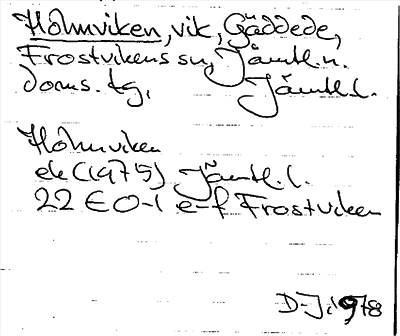 Holmviken, vik, Gäddede,
Frostvikens sn, Jämtl.n.
doms. tg, Jämtl.l.
Holmviken
ek (1975) Jämtl.l.
22 E 0-1 e-f Frostviken
D-J i 978